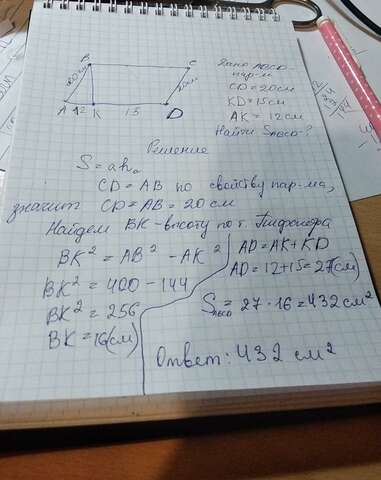 B
C
20см
20см
A 12 K 15 D
Дано: ABCD-
пар-м
CD = 20см
KD = 15см
AK = 12см
Найти SABCD-?
Решение
S = aha
CD = AB по свойству пар-ма,
значит CD = AB = 20 см
Найдем BK-высоту по т. Пифагора
BK² = AB² - AK²
BK² = 400 - 144
BK² = 256
BK = 16(см)
AD = AK + KD
AD = 12+15 = 27(см)
SABCD = 27 · 16 = 432 см²
Ответ: 432 см²